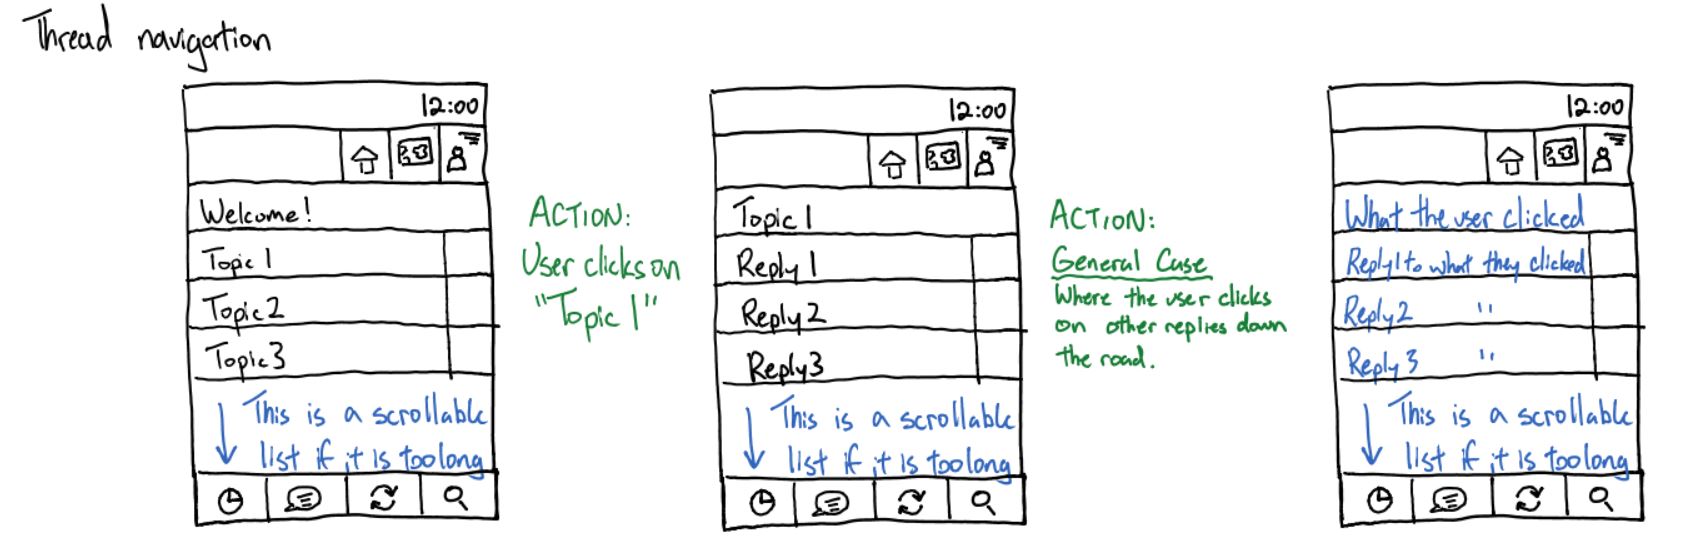 Thread navigation
12:00
Welcome!
Topic 1
Topic 2
Topic 3
This is a scrollable
list if it is too long
ACTION:
User clicks on
"Topic 1"
12:00
Topic 1
Reply 1
Reply 2
Reply 3
This is a scrollable
list if it is too long
ACTION:
General Case
Where the user clicks
on other replies down
the road.
12:00
What the user clicked
Reply 1 to what they clicked
Reply 2 "
Reply 3 "
This is a scrollable
list if it is too long